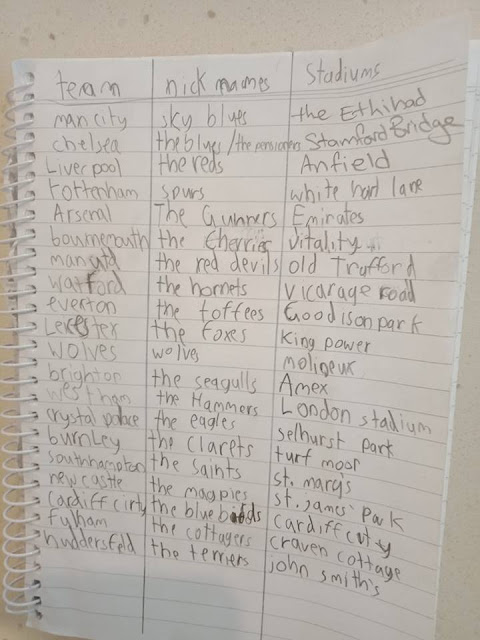 team nick names Stadiums
man city sky blues the Ethihad
chelsea the blues/the pensioners Stamford Bridge
Liverpool the reds Anfield
tottenham spurs white hart lane
Arsenal The Gunners Emirates
bournemouth the Cherries vitality
man utd the red devils old Trufford
watford the hornets vicarage road
everton the toffees Goodison park
Leicester the foxes King power
wolves wolves molineux
brighton the seagulls Amex
westham the Hammers London stadium
crystal palace the eagles selhurst park
burnley the clarets turf moor
southhampton the saints st. mary's
newcastle the magpies st. james' park
cardiff cirty the blue birds cardiff city
fulham the cottagers craven cottage
huddersfeld the terriers john smith's